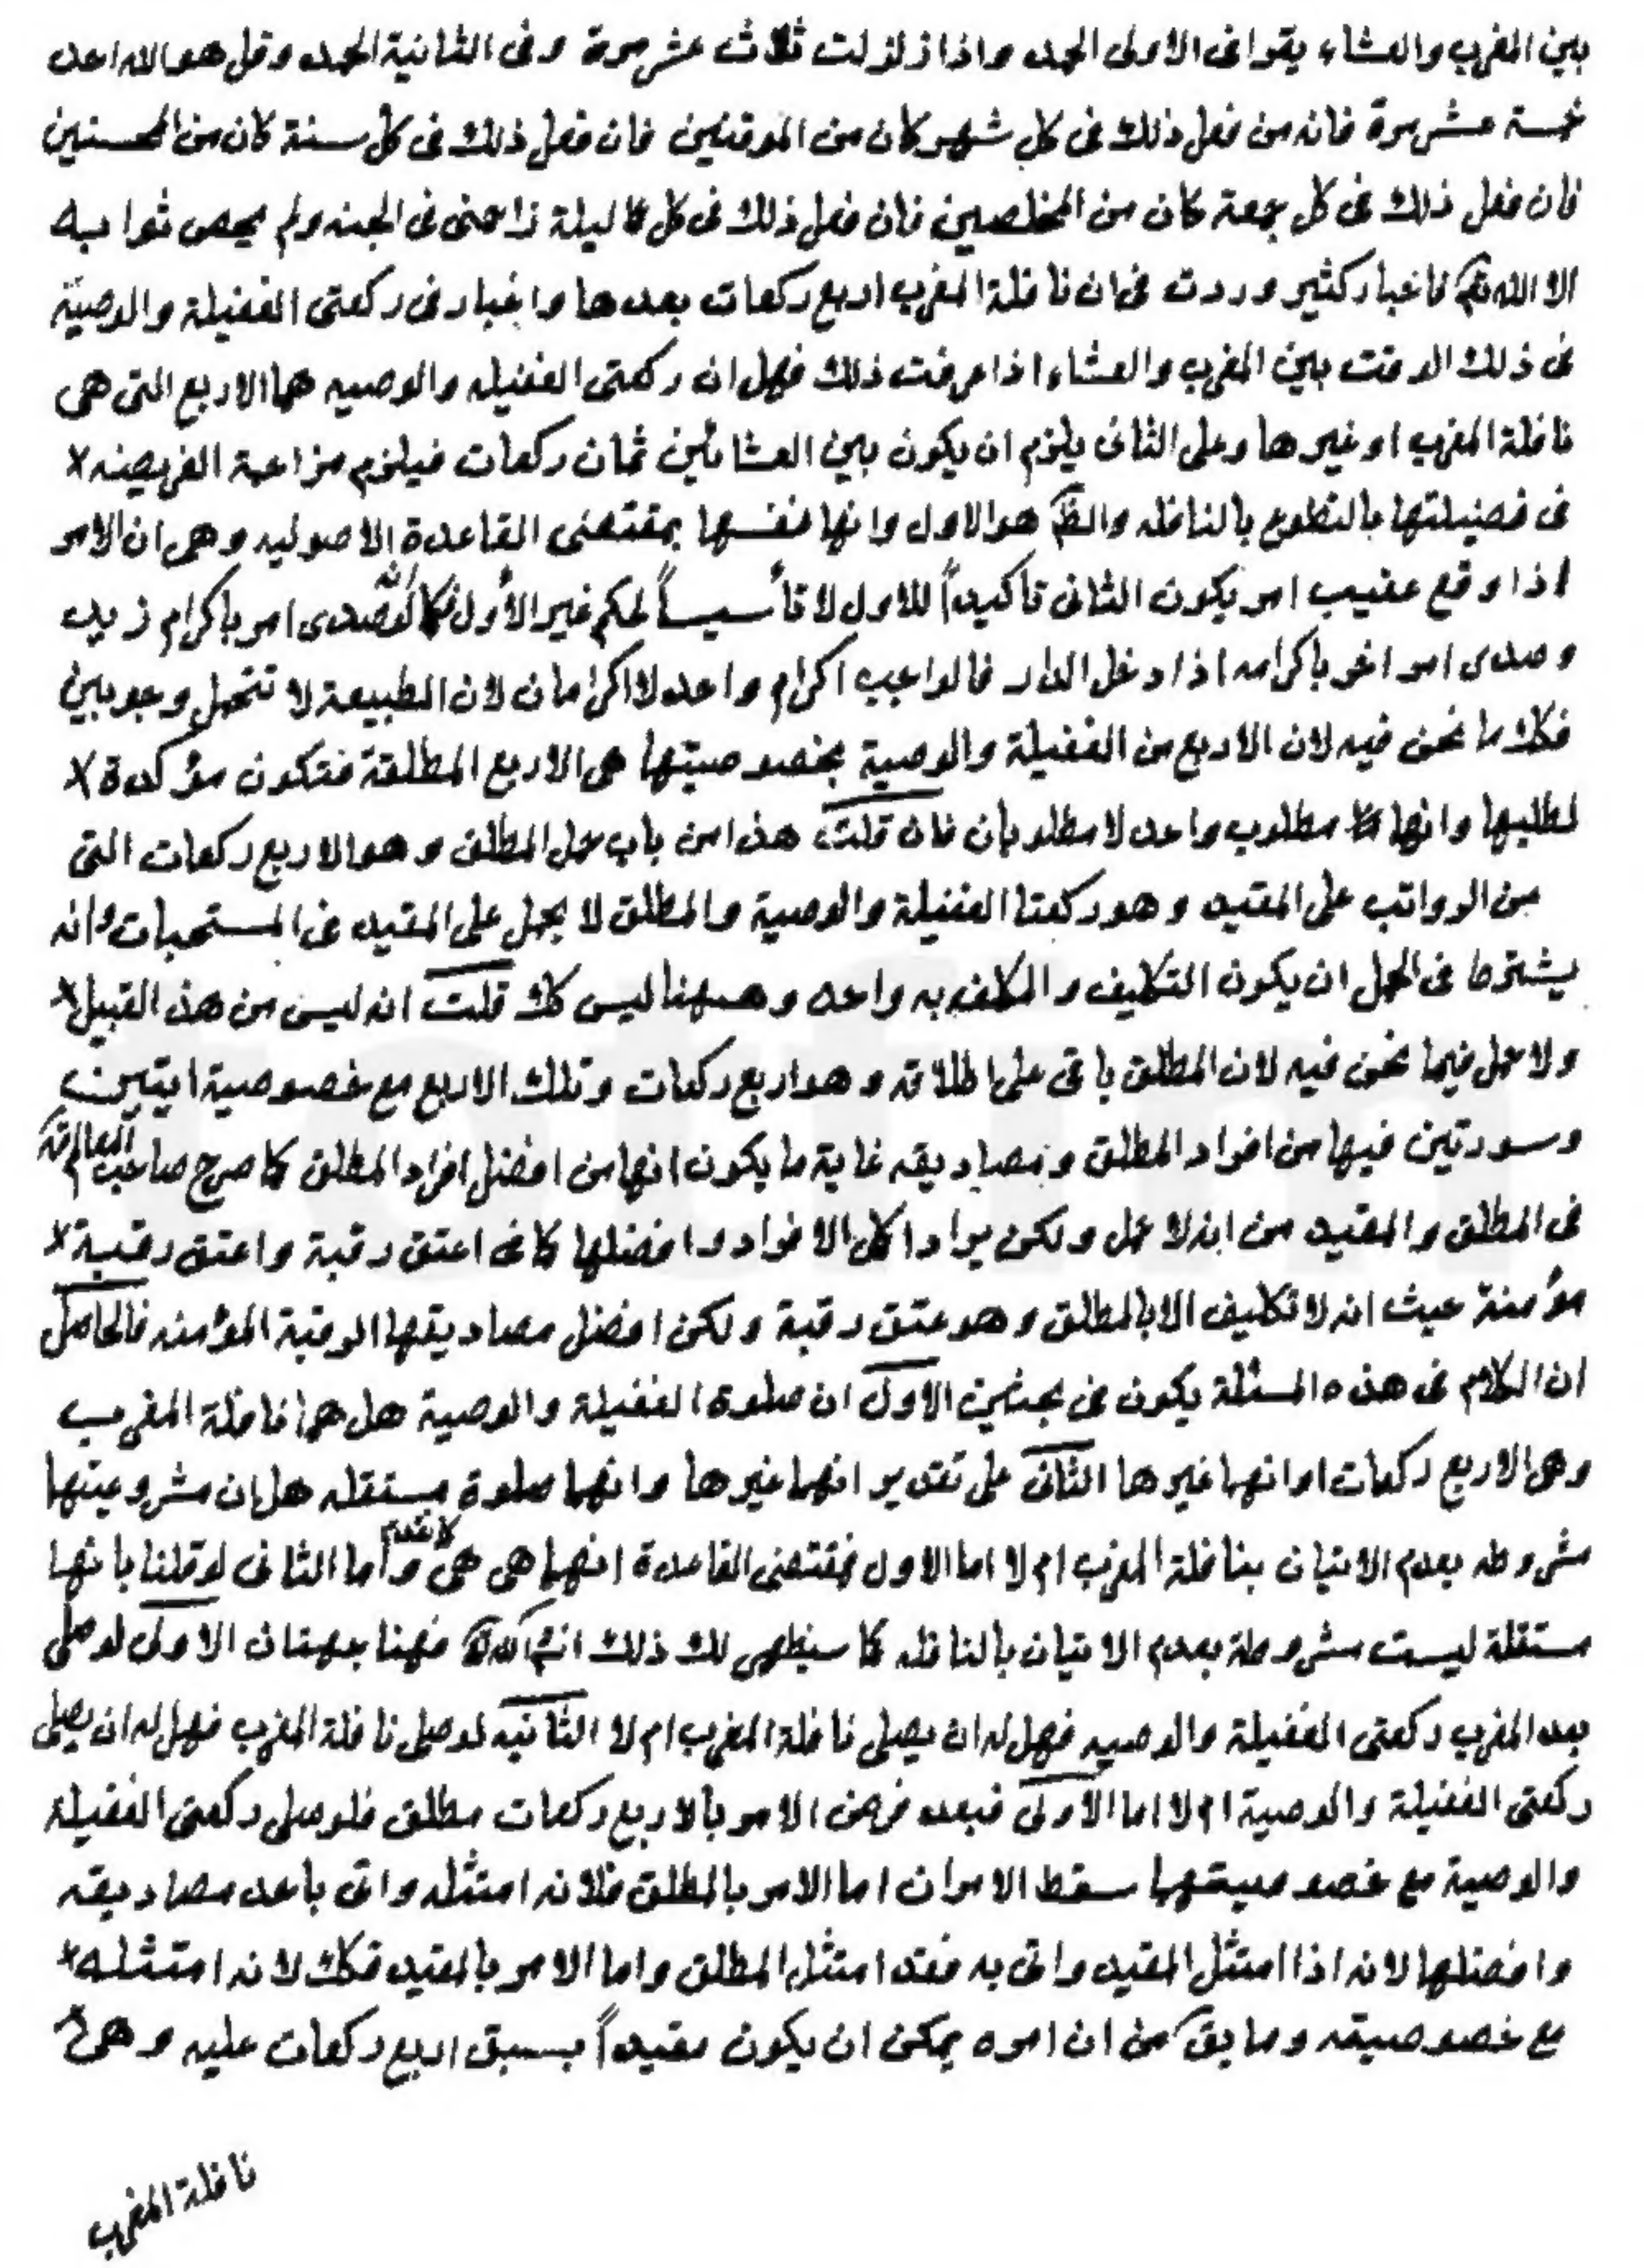 بين المغرب والعشاء يقرا فى الاولى الحمد واذا زلزلت ثلاث عشر مرة وفى الثانية الحمد وقل هو الله احد
خمسة عشر مرة فانه من فعل ذلك فى كل شهر كان من الموقنين فان فعل ذلك فى كل سنة كان من المحسنين
فان فعل ذلك فى كل جمعة كان من المخلصين فان فعل ذلك فى كل ليلة زاحمنى فى الجنه ولم يحص ثوابه
الا الله تع فاخبار كثير وردت فى ان نافلة المغرب اربع ركعات بعدها واخبار فى ركعتى الغفيلة والوصيّة
فى ذلك الوقت بين المغرب والعشاء اذا عرفت ذلك فهل ان ركعتى الغفيله والوصيه هما الاربع التى هى
نافلة المغرب او غيرها وعلى الثانى يلزم ان يكون بين العشائين ثمان ركعات فيلزم مزاحمة الفريضه
فى فضيلتها بالتطوع بالنافله والظ هو الاول وانها نفسها بمقتضى القاعدة الاصوليه وهى ان الامر
اذا وقع عقيب امر يكون الثانى تاكيداً للاول لا تأسيساً لحكم غير الأول فكما انّه لو صدر امر باكرام زيد
وصدر امر اخر باكرامه اذا دخل الدار فالواجب اكرام واحد لا اكرامان لان الطبيعة لا تتحمل وجوبين
فكك ما نحن فيه لان الاربع من الغفيلة والوصية بخصوصيتها هى الاربع المطلقة فتكون مؤكدة
لطلبها وانها مطلوب واحد لا مطلوبان فان قلت هذا من باب حمل المطلق وهو الاربع ركعات التى
من الرواتب على المقيد وهو ركعتا الغفيلة والوصية والمطلق لا يحمل على المقيد فى المستحبات وانه
يشترط فى الحمل ان يكون التكليف والمكلف به واحد وهيهنا ليس كك قلت انه ليس من هذ القبيل
ولا حمل فيما نحن فيه لان المطلق باقى على اطلاقه وهو اربع ركعات وتلك الاربع مع خصوصية ايتين
وسورتين فيها من افراد المطلق ومصاديقه غاية ما يكون انها من افضل افراد المطلق كما صرح صاحب المعالم قده
فى المطلق والمقيد من انه لا حمل ولكن يراد اكمل الافراد وافضلها كما فى اعتق رقبة واعتق رقبة
مؤمنة حيث انه لا تكليف الا بالمطلق وهو عتق رقبة ولكن افضل مصاديقها الرقبة المؤمنه فالحاصل
ان الكلام فى هذه المسئلة يكون فى بحثين الاول ان صلوة الغفيلة والوصية هل هما نافلة المغرب
وهى الاربع ركعات او انهما غيرها الثانى على تقدير انهما غيرها وانهما صلوة مستقله هل ان مشروعيتها
مشروطه بعدم الاتيان بنافلة المغرب ام لا اما الاول فمقتضى القاعدة انهما هى هى كما تقدم واما الثانى لو قلنا بانها
مستقلة ليست مشروطة بعدم الاتيان بالنافله كما سيظهر لك ذلك انشاء الله تع فهنا جهتان الاولى لو صلى
بعد المغرب ركعتى الغفيلة والوصيه فهل له ان يصلى نافلة المغرب ام لا الثانيه لو صلى نافلة المغرب فهل له ان يصلى
ركعتى الغفيلة والوصية ام لا اما الاولى فبعد فرض الامر بالاربع ركعات مطلق فلو صلى ركعتى الغفيلة
والوصية مع خصوصيتهما سقط الامران اما الامر بالمطلق فلانه امتثله واتى باحد مصاديقه
وافضلها لانه اذا امتثل المقيد واتى به فقد امتثل المطلق واما الامر بالمقيد فكك لانه امتثله
مع خصوصيته وما يق من ان امره يمكن ان يكون مقيداً بسبق اربع ركعات عليه وهى
نافلة المغرب